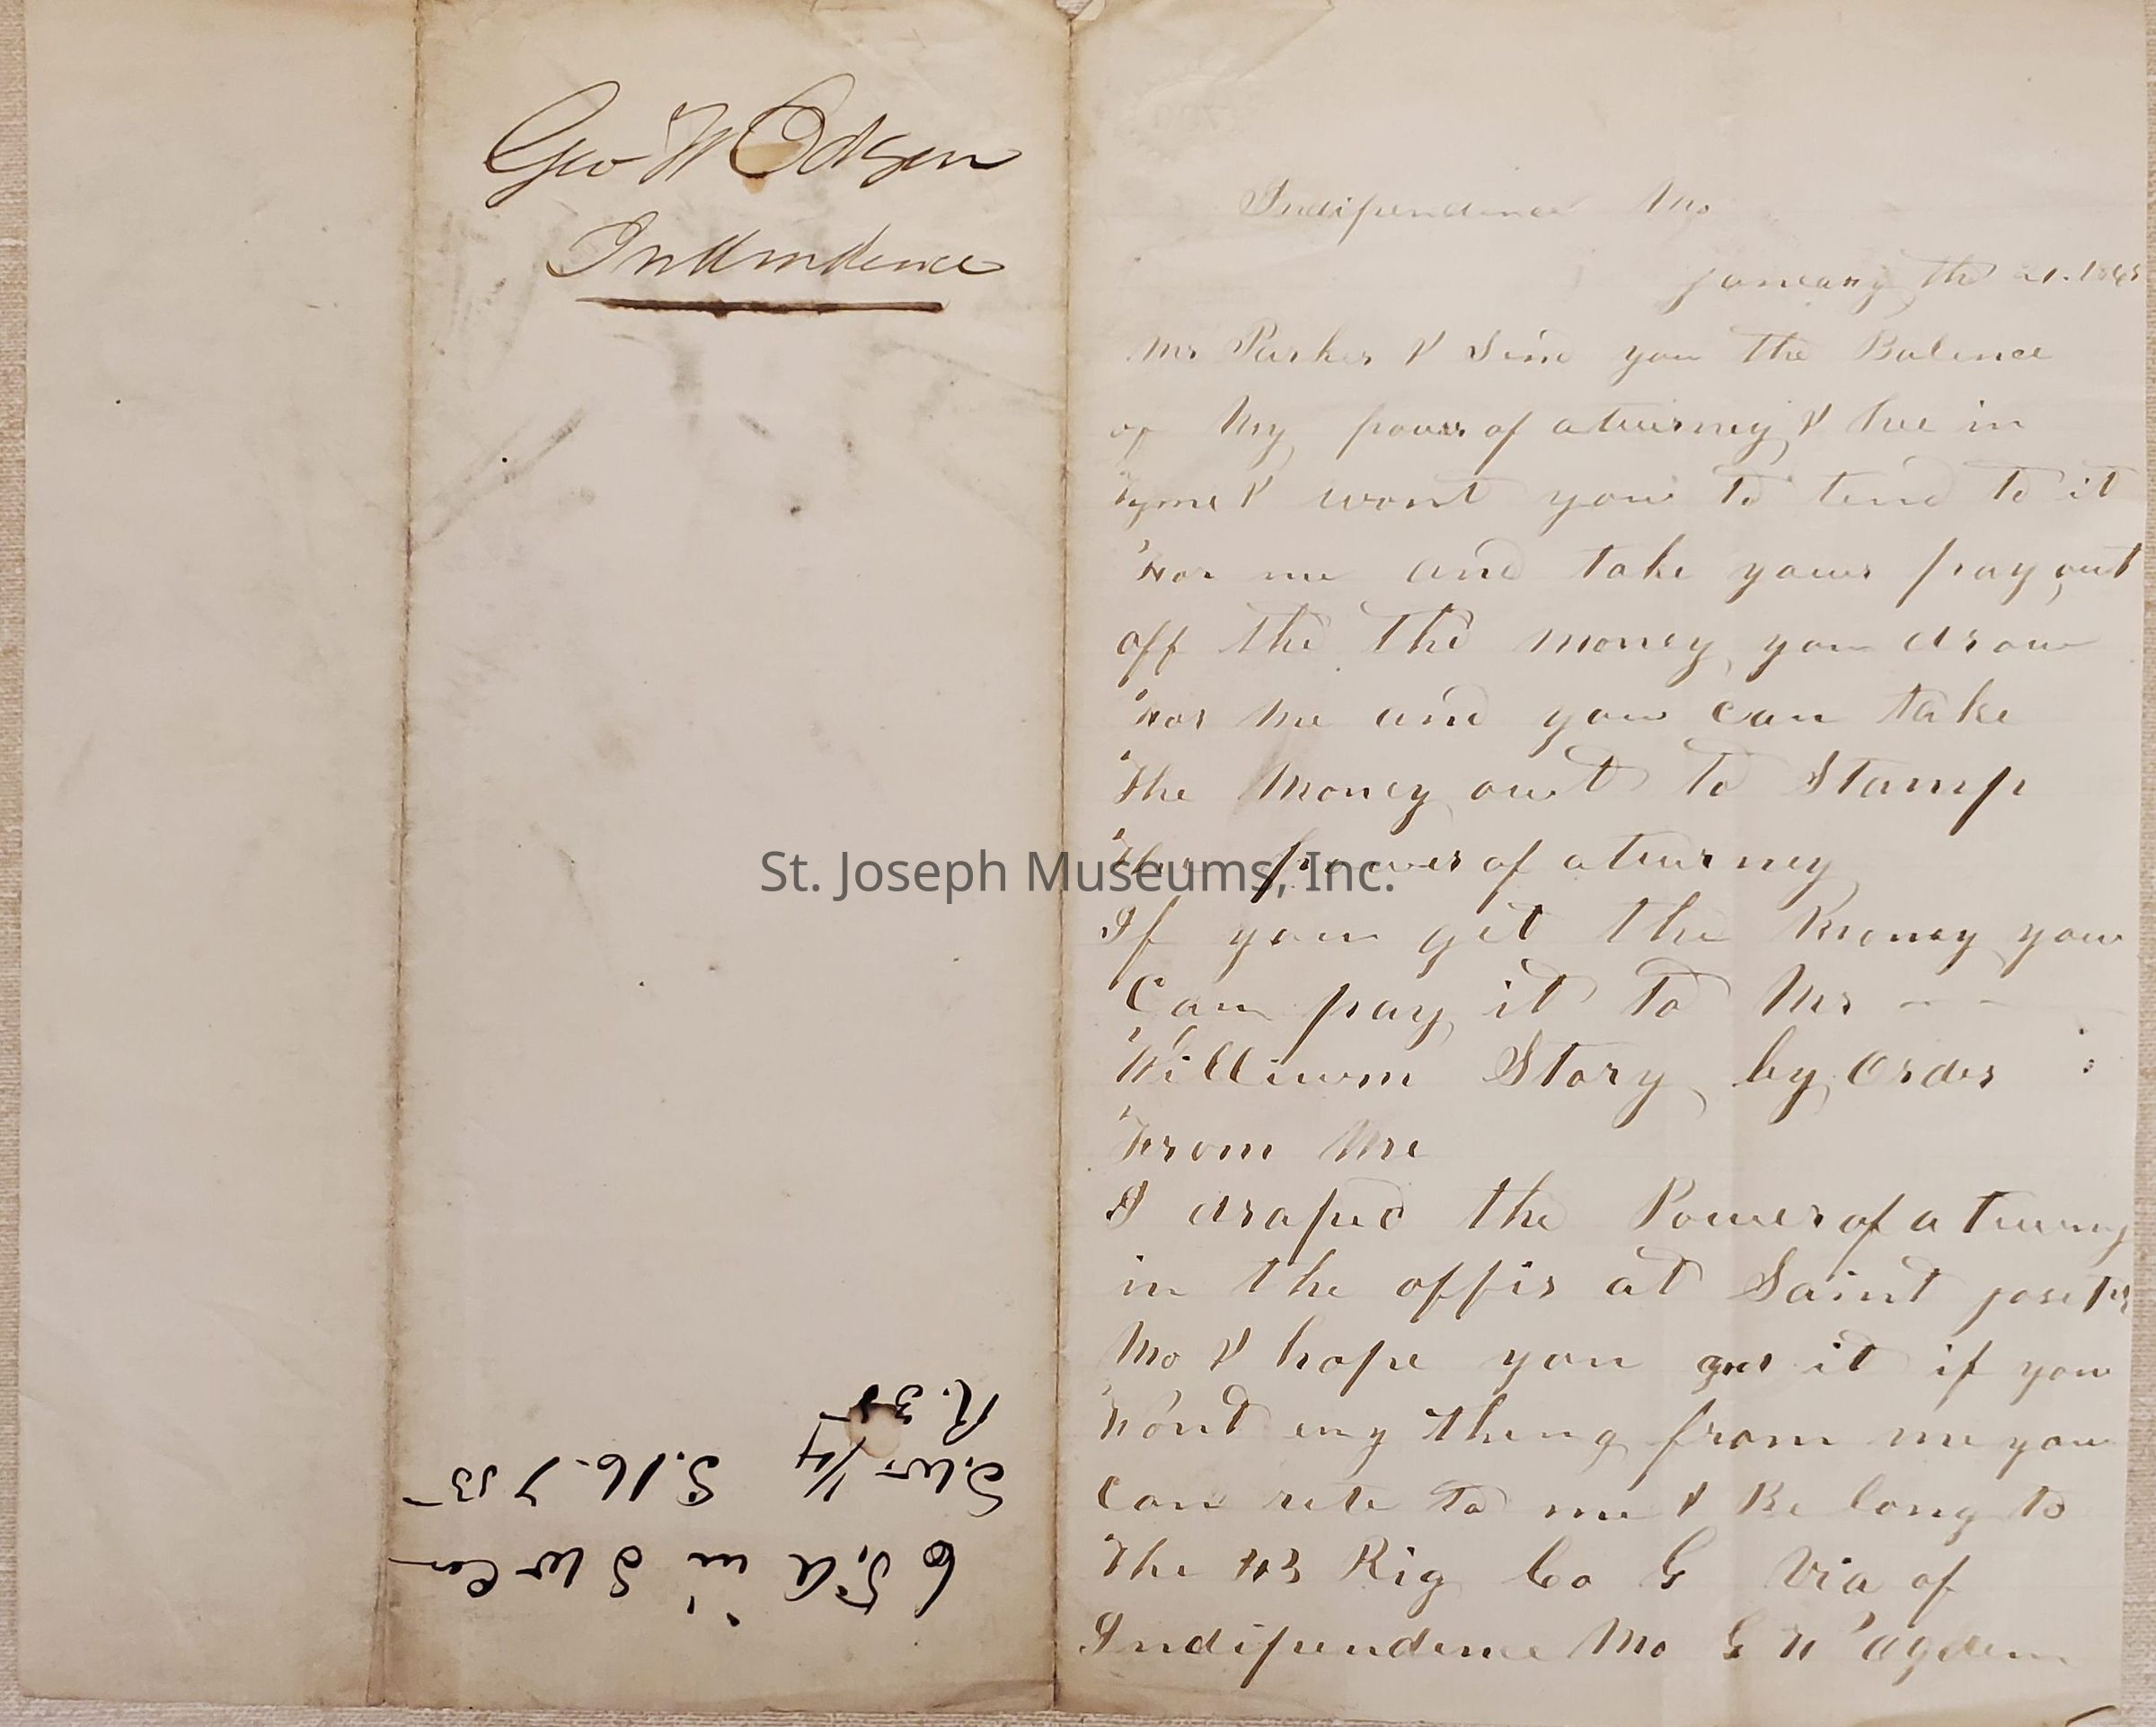 Geo W Odgen
Independence
Indipendince Mo
January the 21. 186
Mr Parker I Send you the Balence
of My power of aturney I live in
I wont you to tend to it
For me and take your pay out
off the the money you draw
For Me and you can take
The Money out to Stamp
The power of aturney
If you git the Money you
Can pay it to Mr - -
William Story by Order :
From Me
I draped the Power of aturny
in the offis at Saint joseph
Mo I hope you get it if you
Wont eny thing from me you
Can rite to me I Be long to
The 43 Rig Co G Via of
Indipendence Mo G W Ogden
6 S, A in S W Cor
S.W 1/4 S. 16. T 53
R. 35
St. Joseph Museums, Inc.